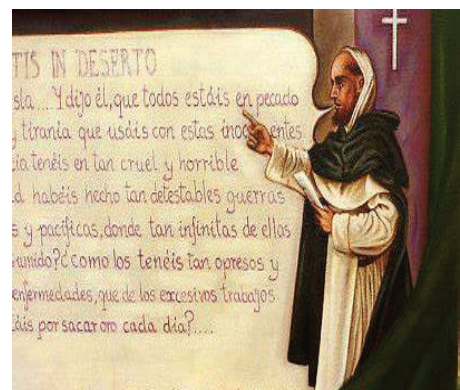 TIS IN DESERTO
sla....Y dijo él, que todos estáis en pecado
y tiranía que usáis con estas inocentes
ía tenéis en tan cruel y horrible
d habéis hecho tan detestables guerras
s y pacíficas, donde tan infinitas de ellas
umido?¿como los tenéis tan opresos y
enfermedades, que de los excesivos trabajos
áis por sacar oro cada día?....